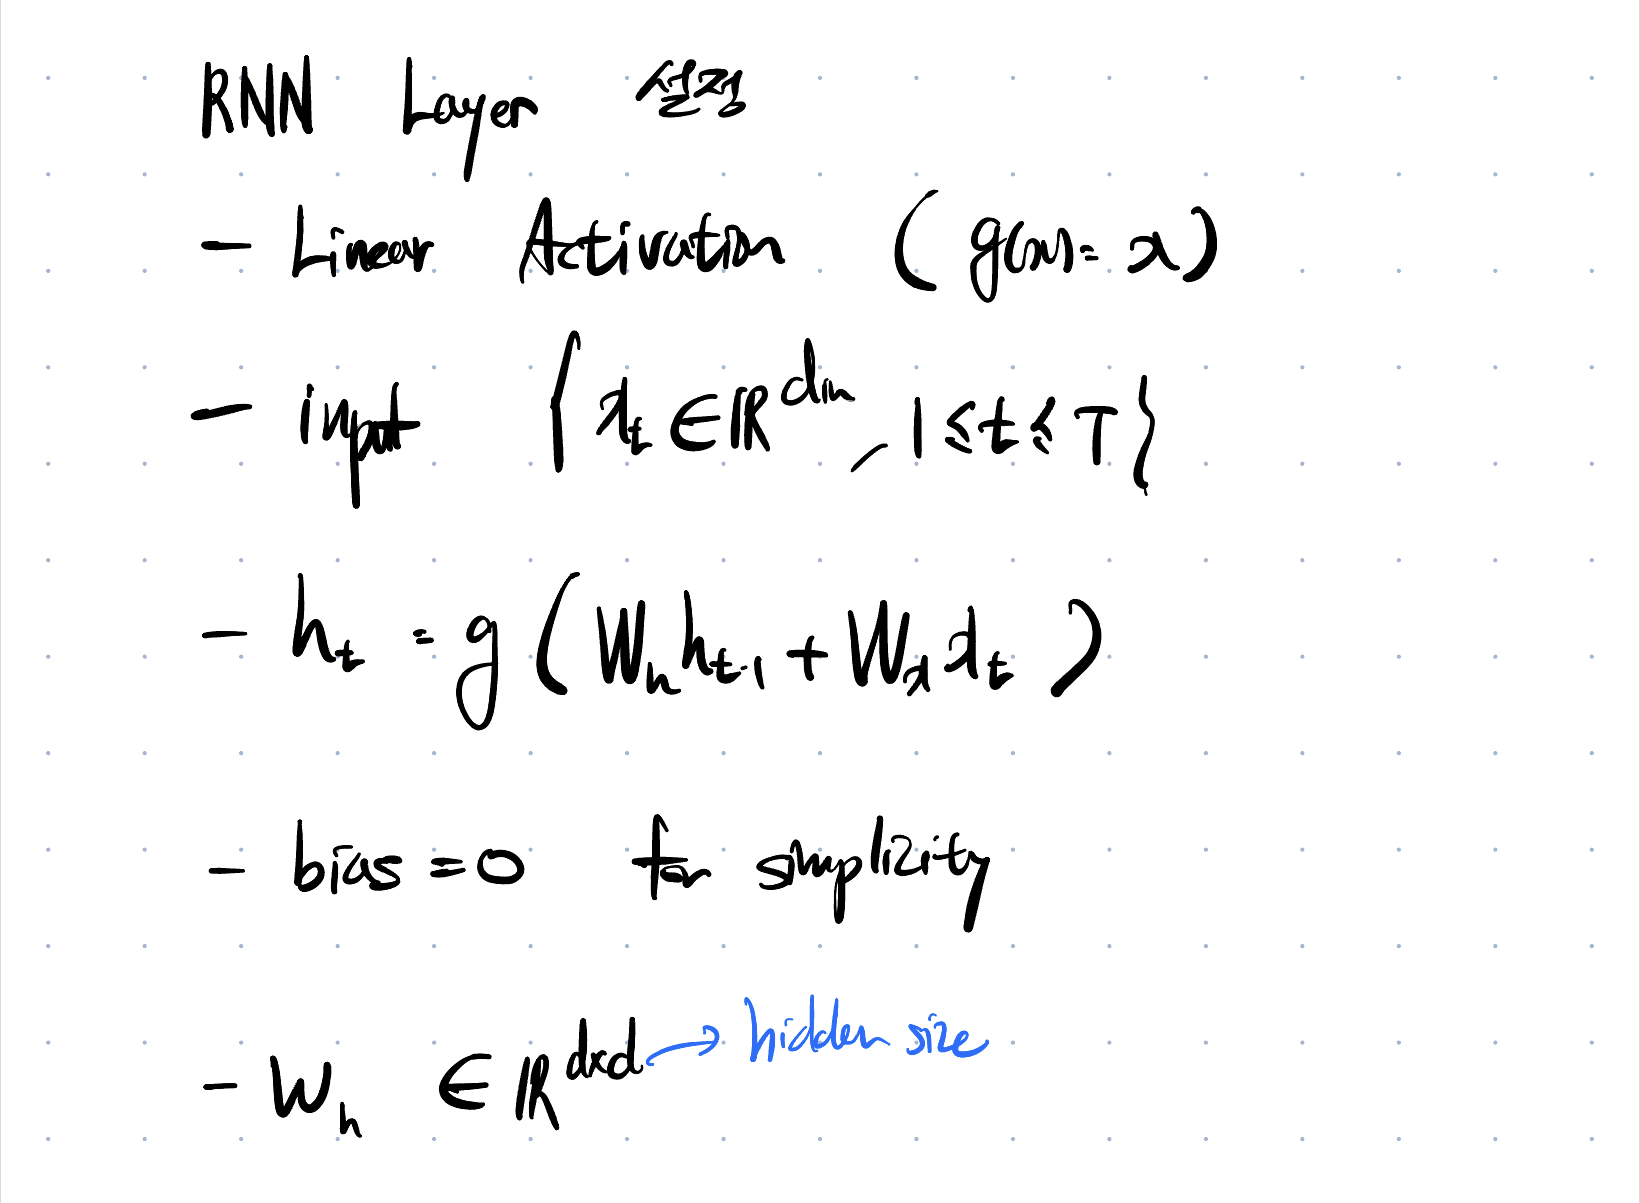 RNN Layer 설정
- Linear Activation (g(x)= x)
- input { x_t ∈ ℝ^{d_in}, 1 ≤ t ≤ T }
- h_t = g ( W_h h_{t-1} + W_x x_t )
- bias = 0 for simplicity
- W_h ∈ ℝ^{d×d} → hidden size